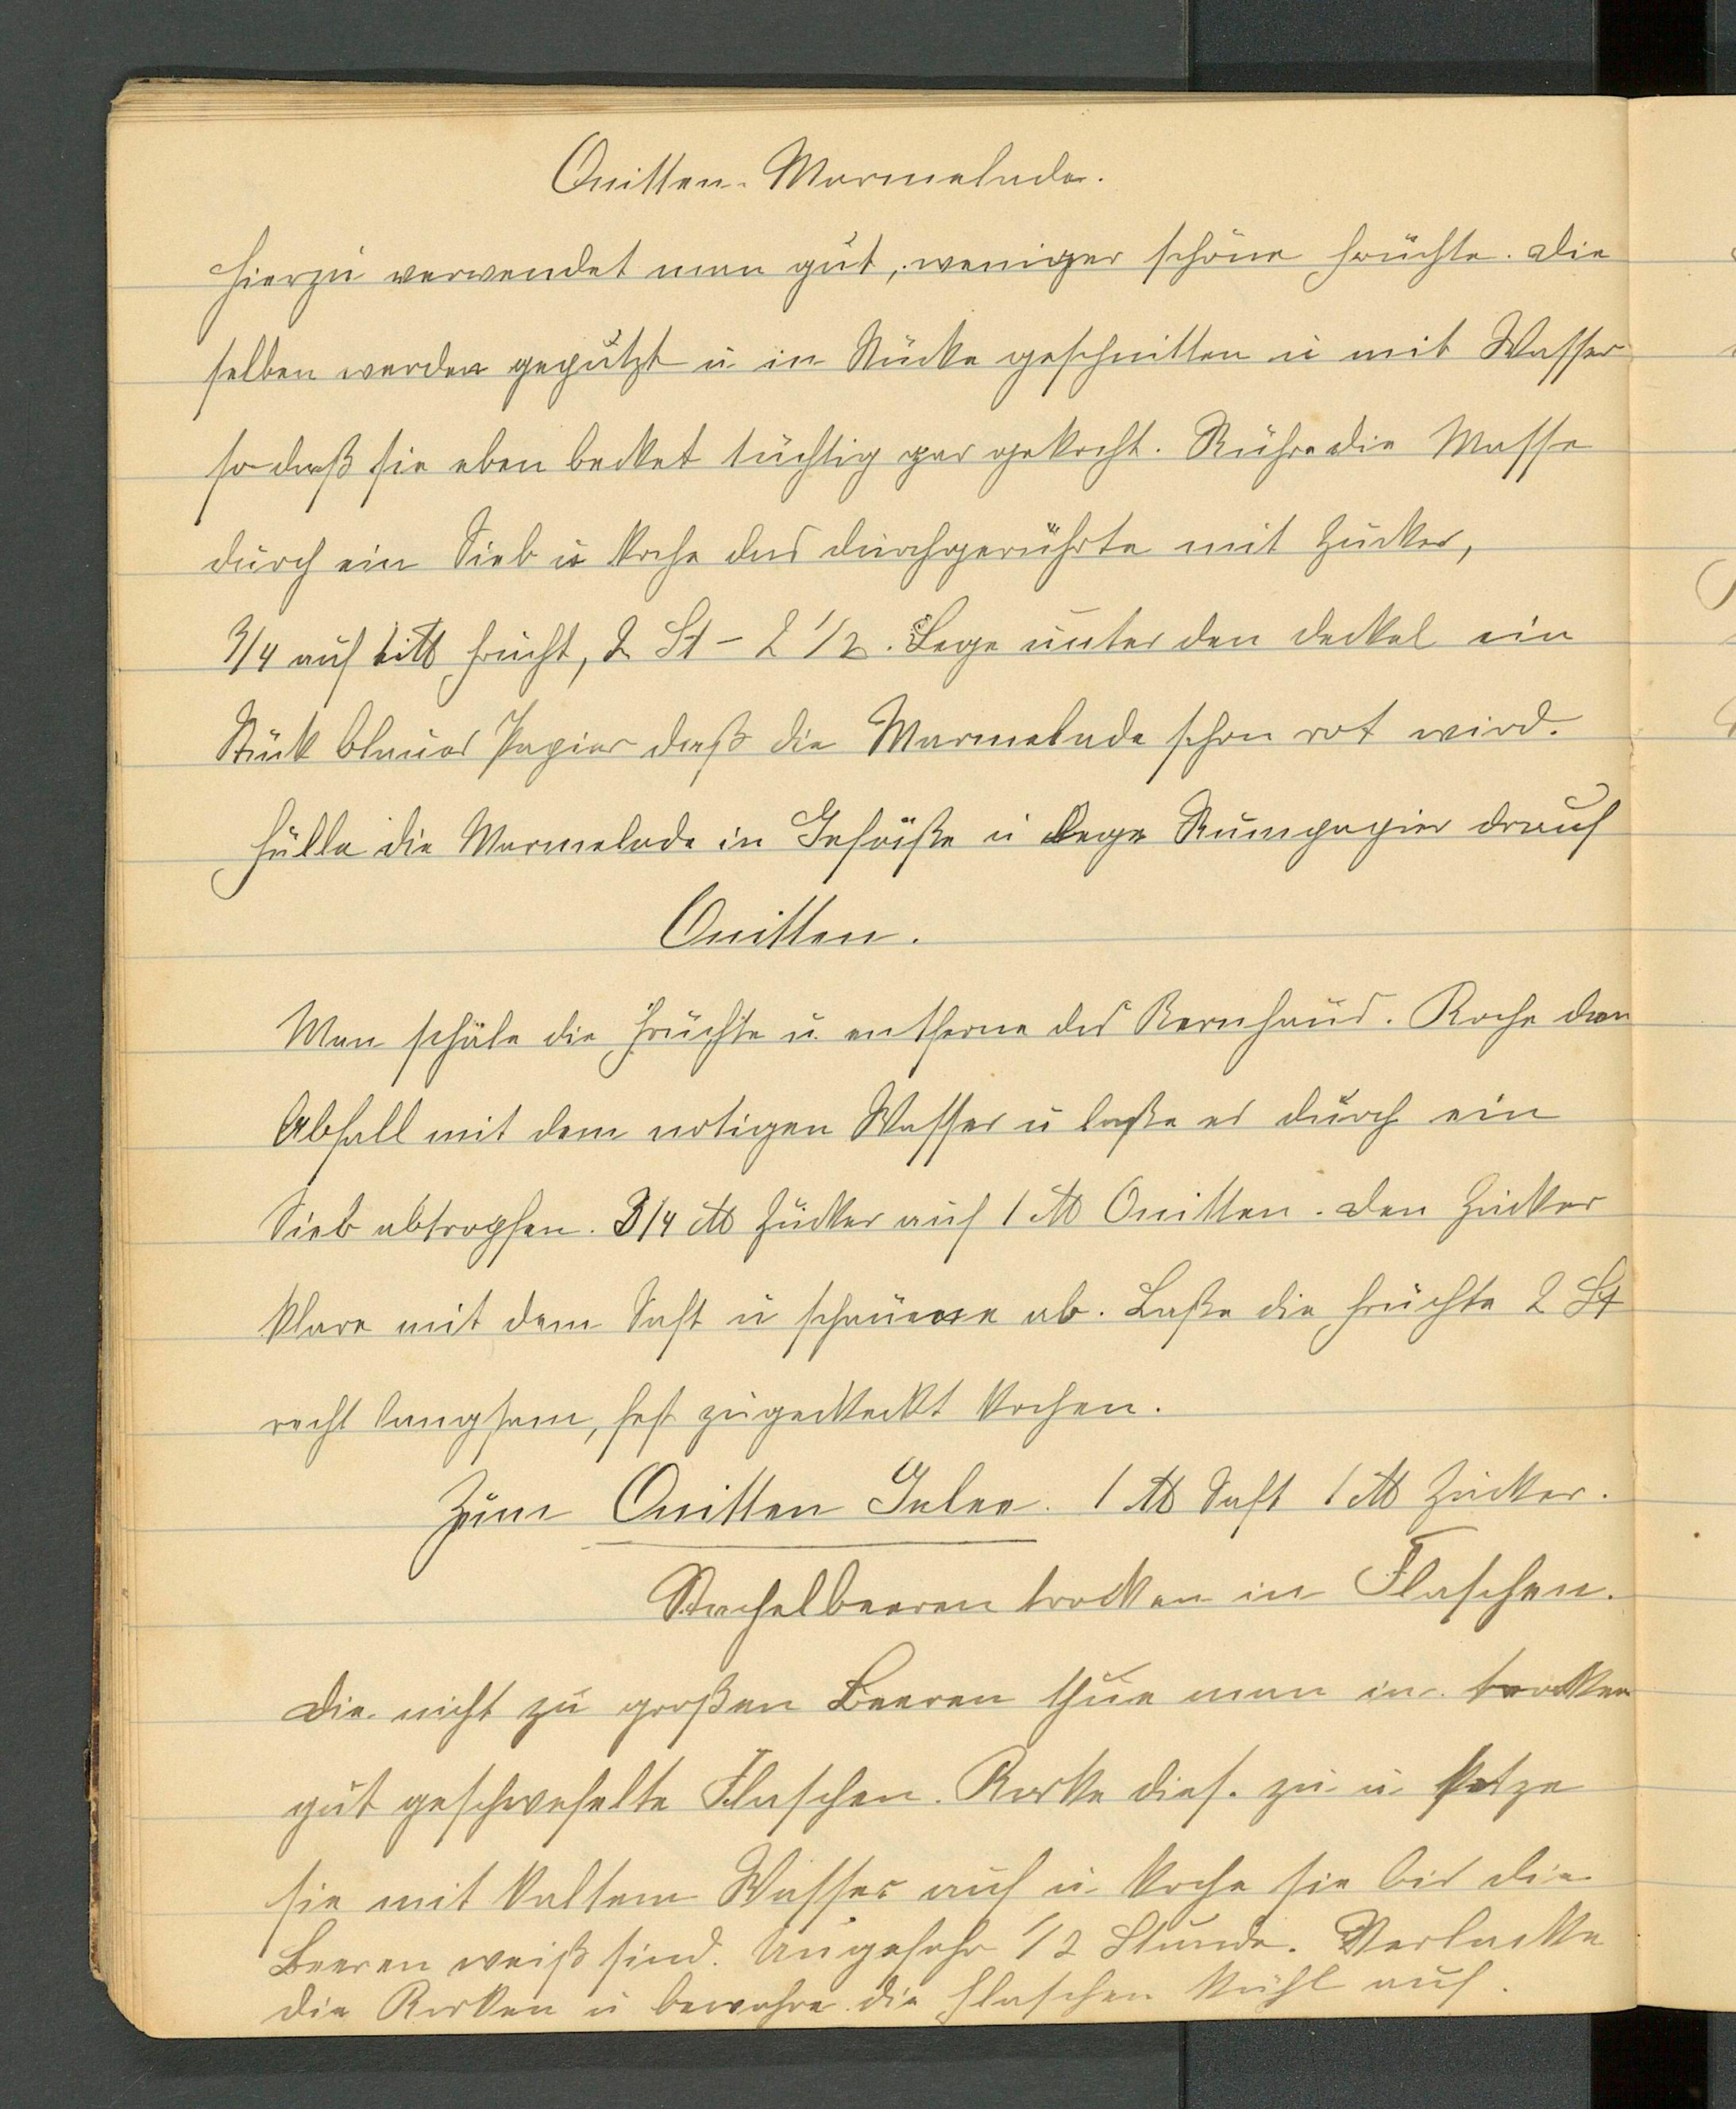 Quitten-Marmelade.
Hierzu verwendet man gut, weniger schöne Früchte. Die
selben werden geputzt u in Stücke geschnitten u mit Wasser
so daß sie eben decket tüchtig gar gekocht. Rühre die Masse
durch ein Sieb u koche das durchgerührte mit Zucker,
3/4 auf 1 ℔ Frucht, 2 St - 2 1/2. Lege unter den Deckel ein
Stück blaues Papier daß die Marmelade schon rot wird.
Fülle die Marmelade in Gefäße u lege Rumpapier drauf
Quitten.
Man schäle die Früchte u. entferne das Kernhaus. Koche den
Abfall mit dem notigen Wasser u laße es durch ein
Sieb abtropfen. 3/4 ℔ Zucker auf 1 ℔ Quitten. Den Zucker
klare mit dem Saft u schäume ab. Laße die Früchte 2 St
recht langsam, fest zugedeckt kochen.
Zum Quitten Gelee. 1 ℔ Saft 1 ℔ Zucker.
Stachelbeeren trocken in Flaschen.
Die nicht zu großen Beeren thue man in trocken
gut geschwefelte Flaschen. Korke dies. zu u. setze
sie mit kaltem Wasser auf u koche sie bis die
Beeren weiß sind. Ungefahr 1/2 Stunde. Verlacke
die Korken u bewahre die Flaschen kühl auf.